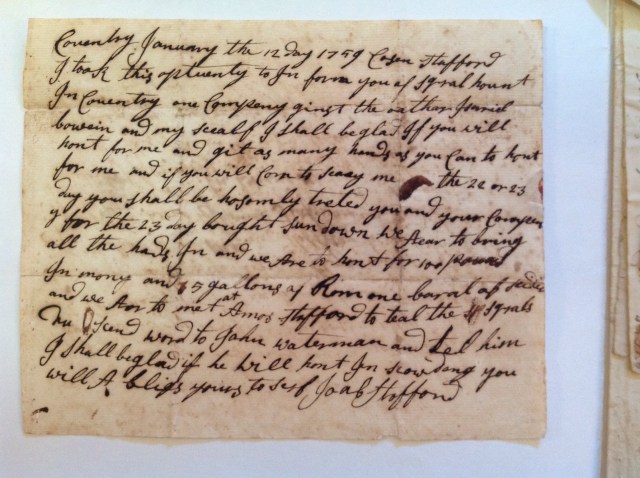 Coventry January the 12 day 1759 Cosen Stafford
I took this optuenty to In form you of Sqral hount
In Coventry one Compeny ginst the other
bowein and my sealf I shall be glad If you will
hont for me and git as many hands as you Can to hont
for me and if you will Com to me the 22 or 23
day you shall be hosomly treted you and your Compen
y for the 23 day bought sun down We Aear to bring
all the hads In and we Are to hont for 100 pounds
In mony and 5 gallons of Rom one baral of
and we Aor to met at Amos Stafford to teal the Sqrals
scend word to John waterman and tel him
I Shall be glad if he Will hont In so doing you
will A bligs yours to serf Joab Stafford